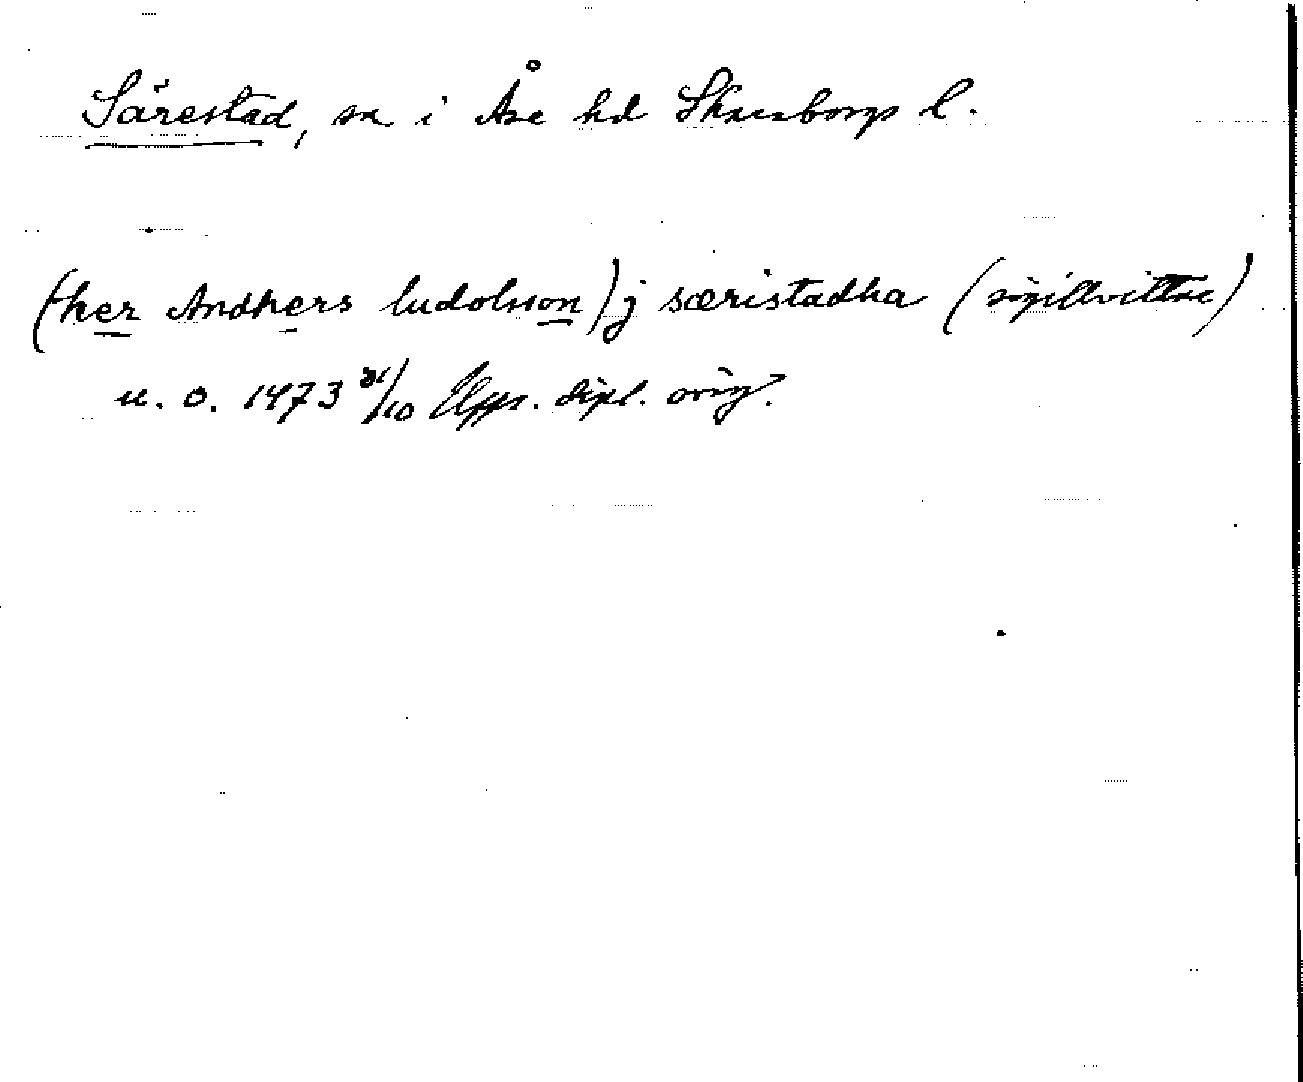 Särestad, sn i Åse hd Skaraborgs l.
(her Andhers ludolsson) j særistadha (sigillvittne)
u. o. 1473 31/10 Upps. dipl. orig.